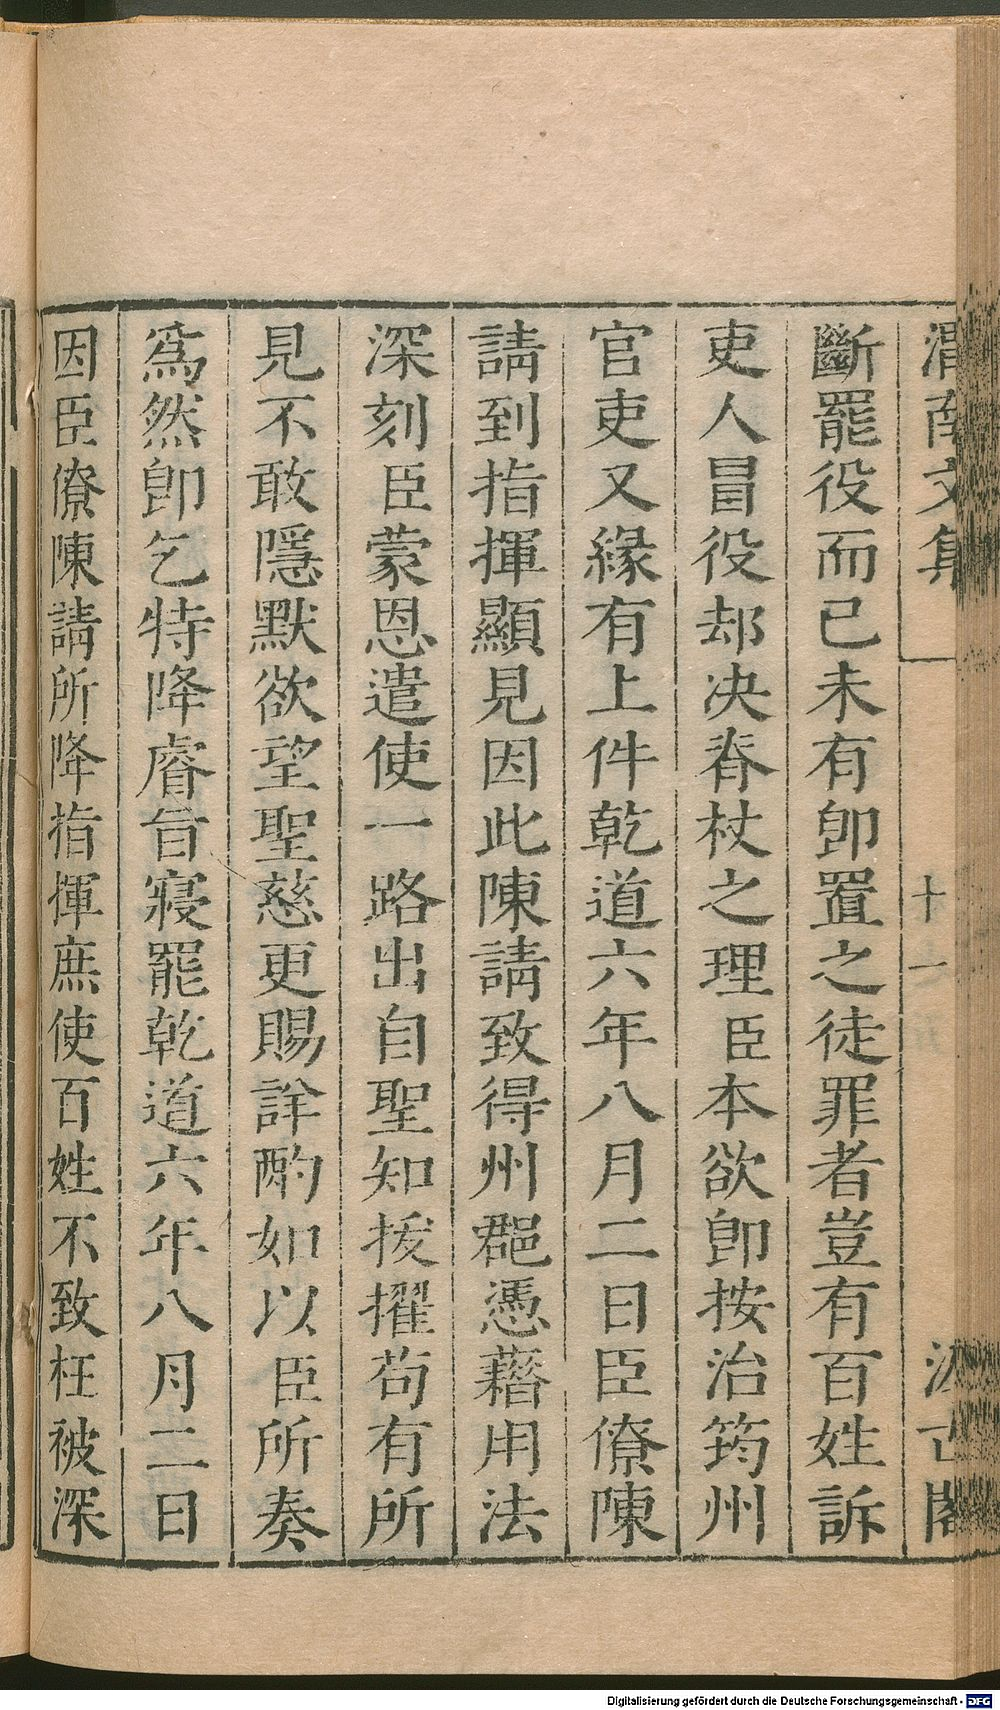 渭南文集 十一 汲古閣
斷罷役而已未有卽置之徒罪者豈有百姓訴
吏人冒役却決脊杖之理臣本欲卽按治筠州
官吏又緣有上件乾道六年八月二日臣僚陳
請到指揮顯見因此陳請致得州郡憑藉用法
深刻臣蒙恩遣使一路出自聖知拔擢苟有所
見不敢隱默欲望聖慈更賜詳酌如以臣所奏
爲然卽乞特降睿旨寢罷乾道六年八月二日
因臣僚陳請所降指揮庶使百姓不致枉被深
Digitalisierung gefördert durch die Deutsche Forschungsgemeinschaft - DFG